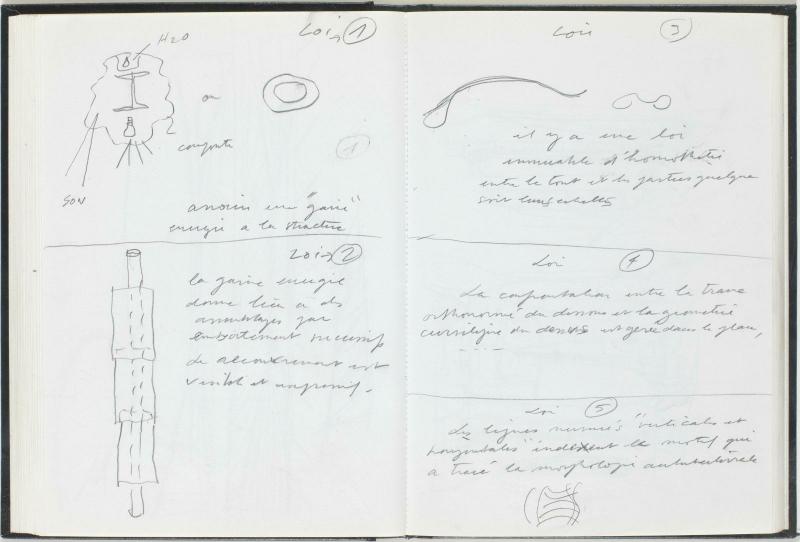 Lois 1
H2O
ou
SON
1
associer une "gaine"
énergie a la structure
Lois 2
la gaine énergie
donne lieu a des
assemblages par
emboitement successif
de recouvrement est
visible et
Lois 3
il y a une loi
immuable d'homothétie
entre le tout et les parties quelque
soit leurs echelles
Loi 4
La confrontation entre la trame
orthonormé du dessous et la géometrie
curviligne du dessus est gérée dans le plan,
Loi 5
Les lignes nervurés "verticales et
horizontales" indexent le motif qui
a tracé la morphologie